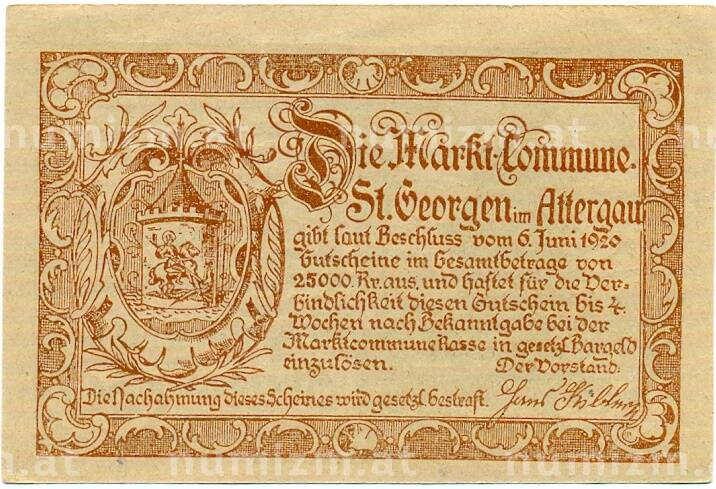 Die Markt-Commune.
St. Georgen im Attergau
gibt laut Beschluss vom 6. Juni 1920
Gutscheine im Gesamtbetrage von
25000. Kr. aus, und haftet für die Ver=
bindlichkeit diesen Gutschein bis 4.
Wochen nach Bekanntgabe bei der
Marktcommune Kasse in gesetzl. Bargeld
einzulösen. Der Vorstand.
Die Nachahmung dieses Scheines wird gesetzl. bestraft. Hans
numizm.at
numizm.at
numizm.at
numizm.at